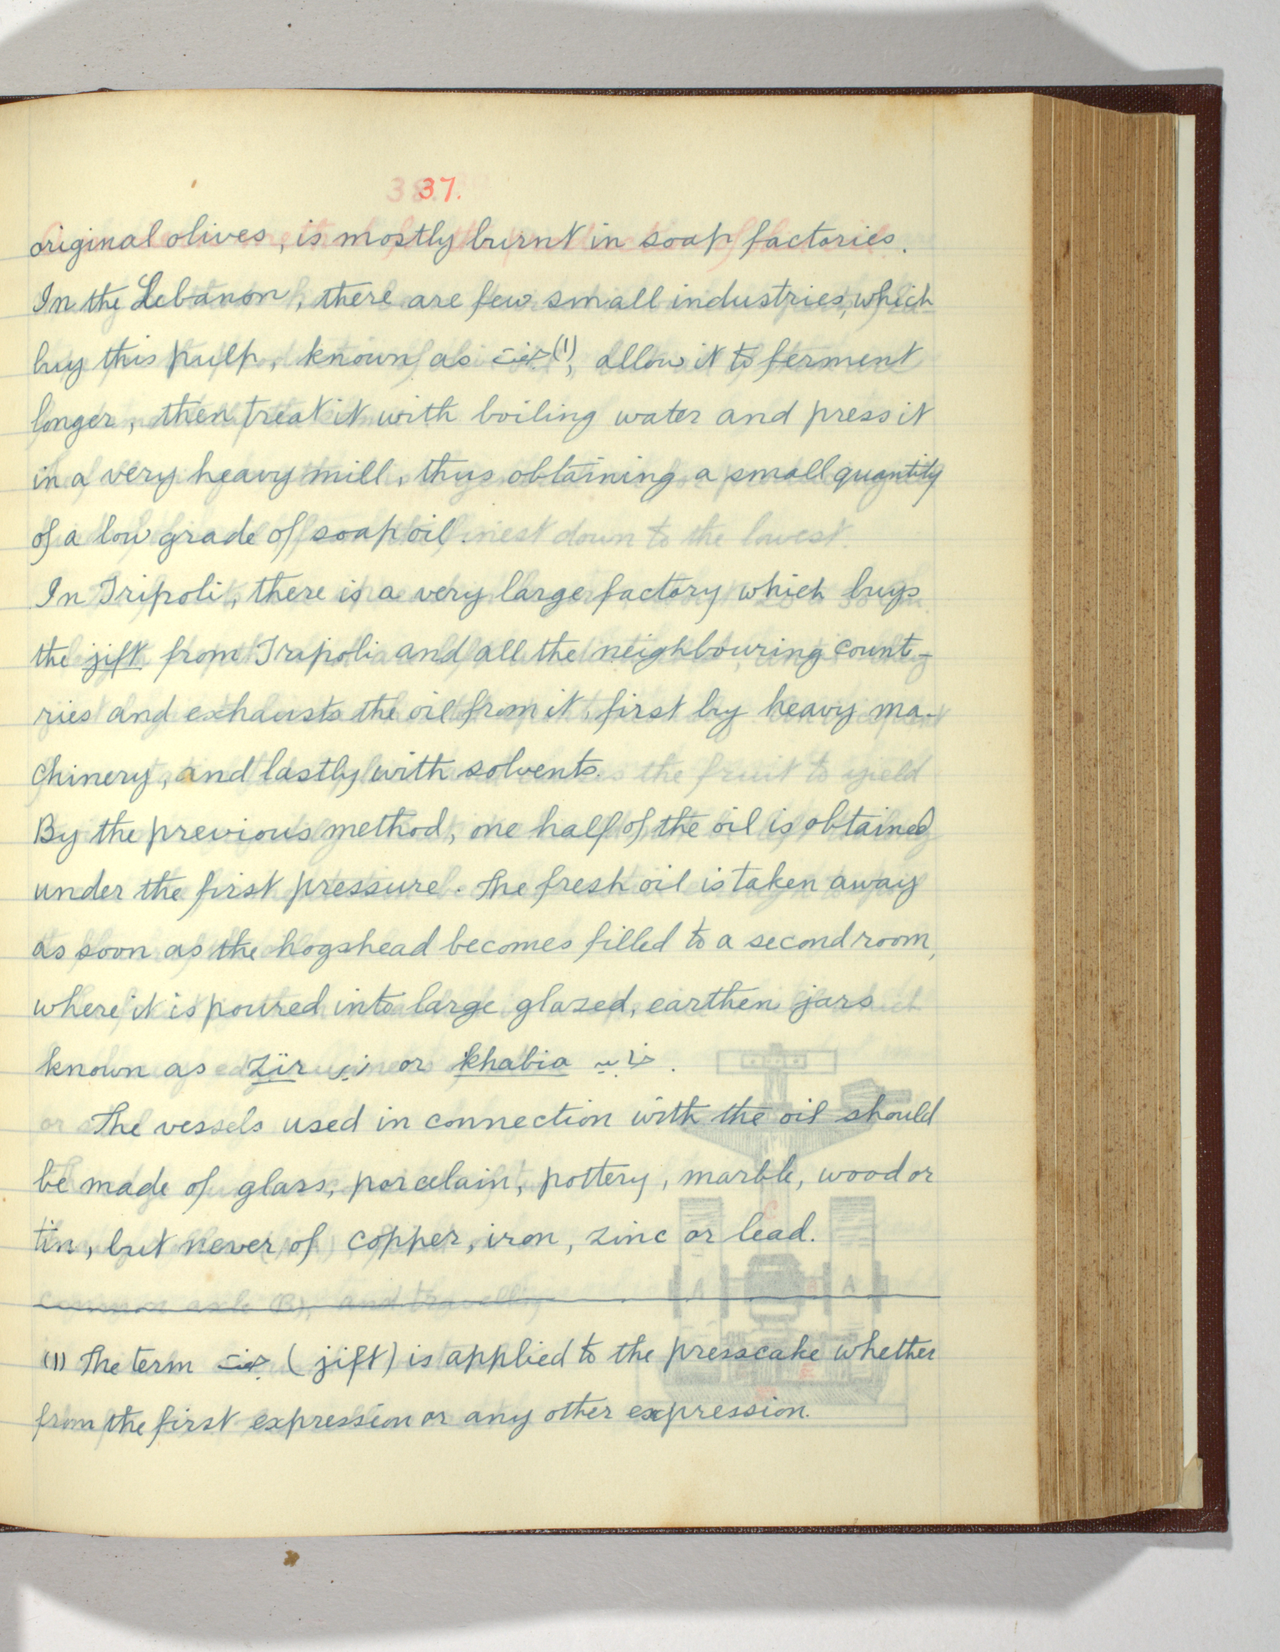 37.
original olives, is mostly burnt in soap factories.
In the Lebanon, there are few small industries, which
buy this pulp, known as جفت (1), allow it to ferment
longer, then treat it with boiling water and press it
in a very heavy mill, thus obtaining a small quantity
of a low grade of soap oil.
In Tripoli, there is a very large factory which buys
the jift from Tripoli and all the neighbouring count-
ries and exhausts the oil from it, first by heavy ma-
chinery, and lastly with solvents.
By the previous method, one half of the oil is obtained
under the first pressure. The fresh oil is taken away
as soon as the hogshead becomes filled to a second room,
where it is poured into large glazed, earthen jars
known as zïr زير or khabia خابية.
The vessels used in connection with the oil should
be made of glass, porcelain, pottery, marble, wood or
tin, but never of copper, iron, zinc or lead.
(1) The term جفت (jift) is applied to the presscake whether
from the first expression or any other expression.